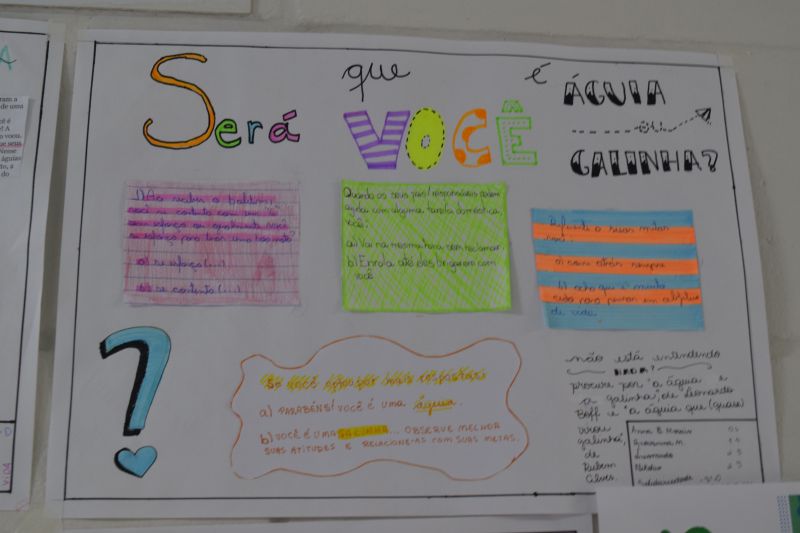 Será que VOCÊ é ÁGUIA
GALINHA?
1) Ao receber o boletim
você se contenta com um
seu esforço ou
se esforça para tirar uma boa nota?
a) se esforça (...)
b) se contenta (...)
Quando os seus pais/responsáveis pedem
ajuda com alguma tarefa doméstica,
você:
a) Vai na mesma hora sem reclamar
b) Enrola até eles brigarem com
você
a suas metas
você:
a) corre atrás sempre
b) acha que é muito
cedo para pensar em objetivo
de vida.
?
Se você optou por mais respostas:
a) PARABÉNS! VOCÊ É UMA águia.
b) VOCÊ É UMA GALINHA... OBSERVE MELHOR
SUAS ATITUDES E RELACIONE-AS COM SUAS METAS.
não está entendendo
NADA?
procure por "a águia e
a galinha", de Leonardo
Boff e "a águia que (quase)
virou
galinha",
de
Rubem
Alves.
Anna B.
Giovanna M.
Solidariedade